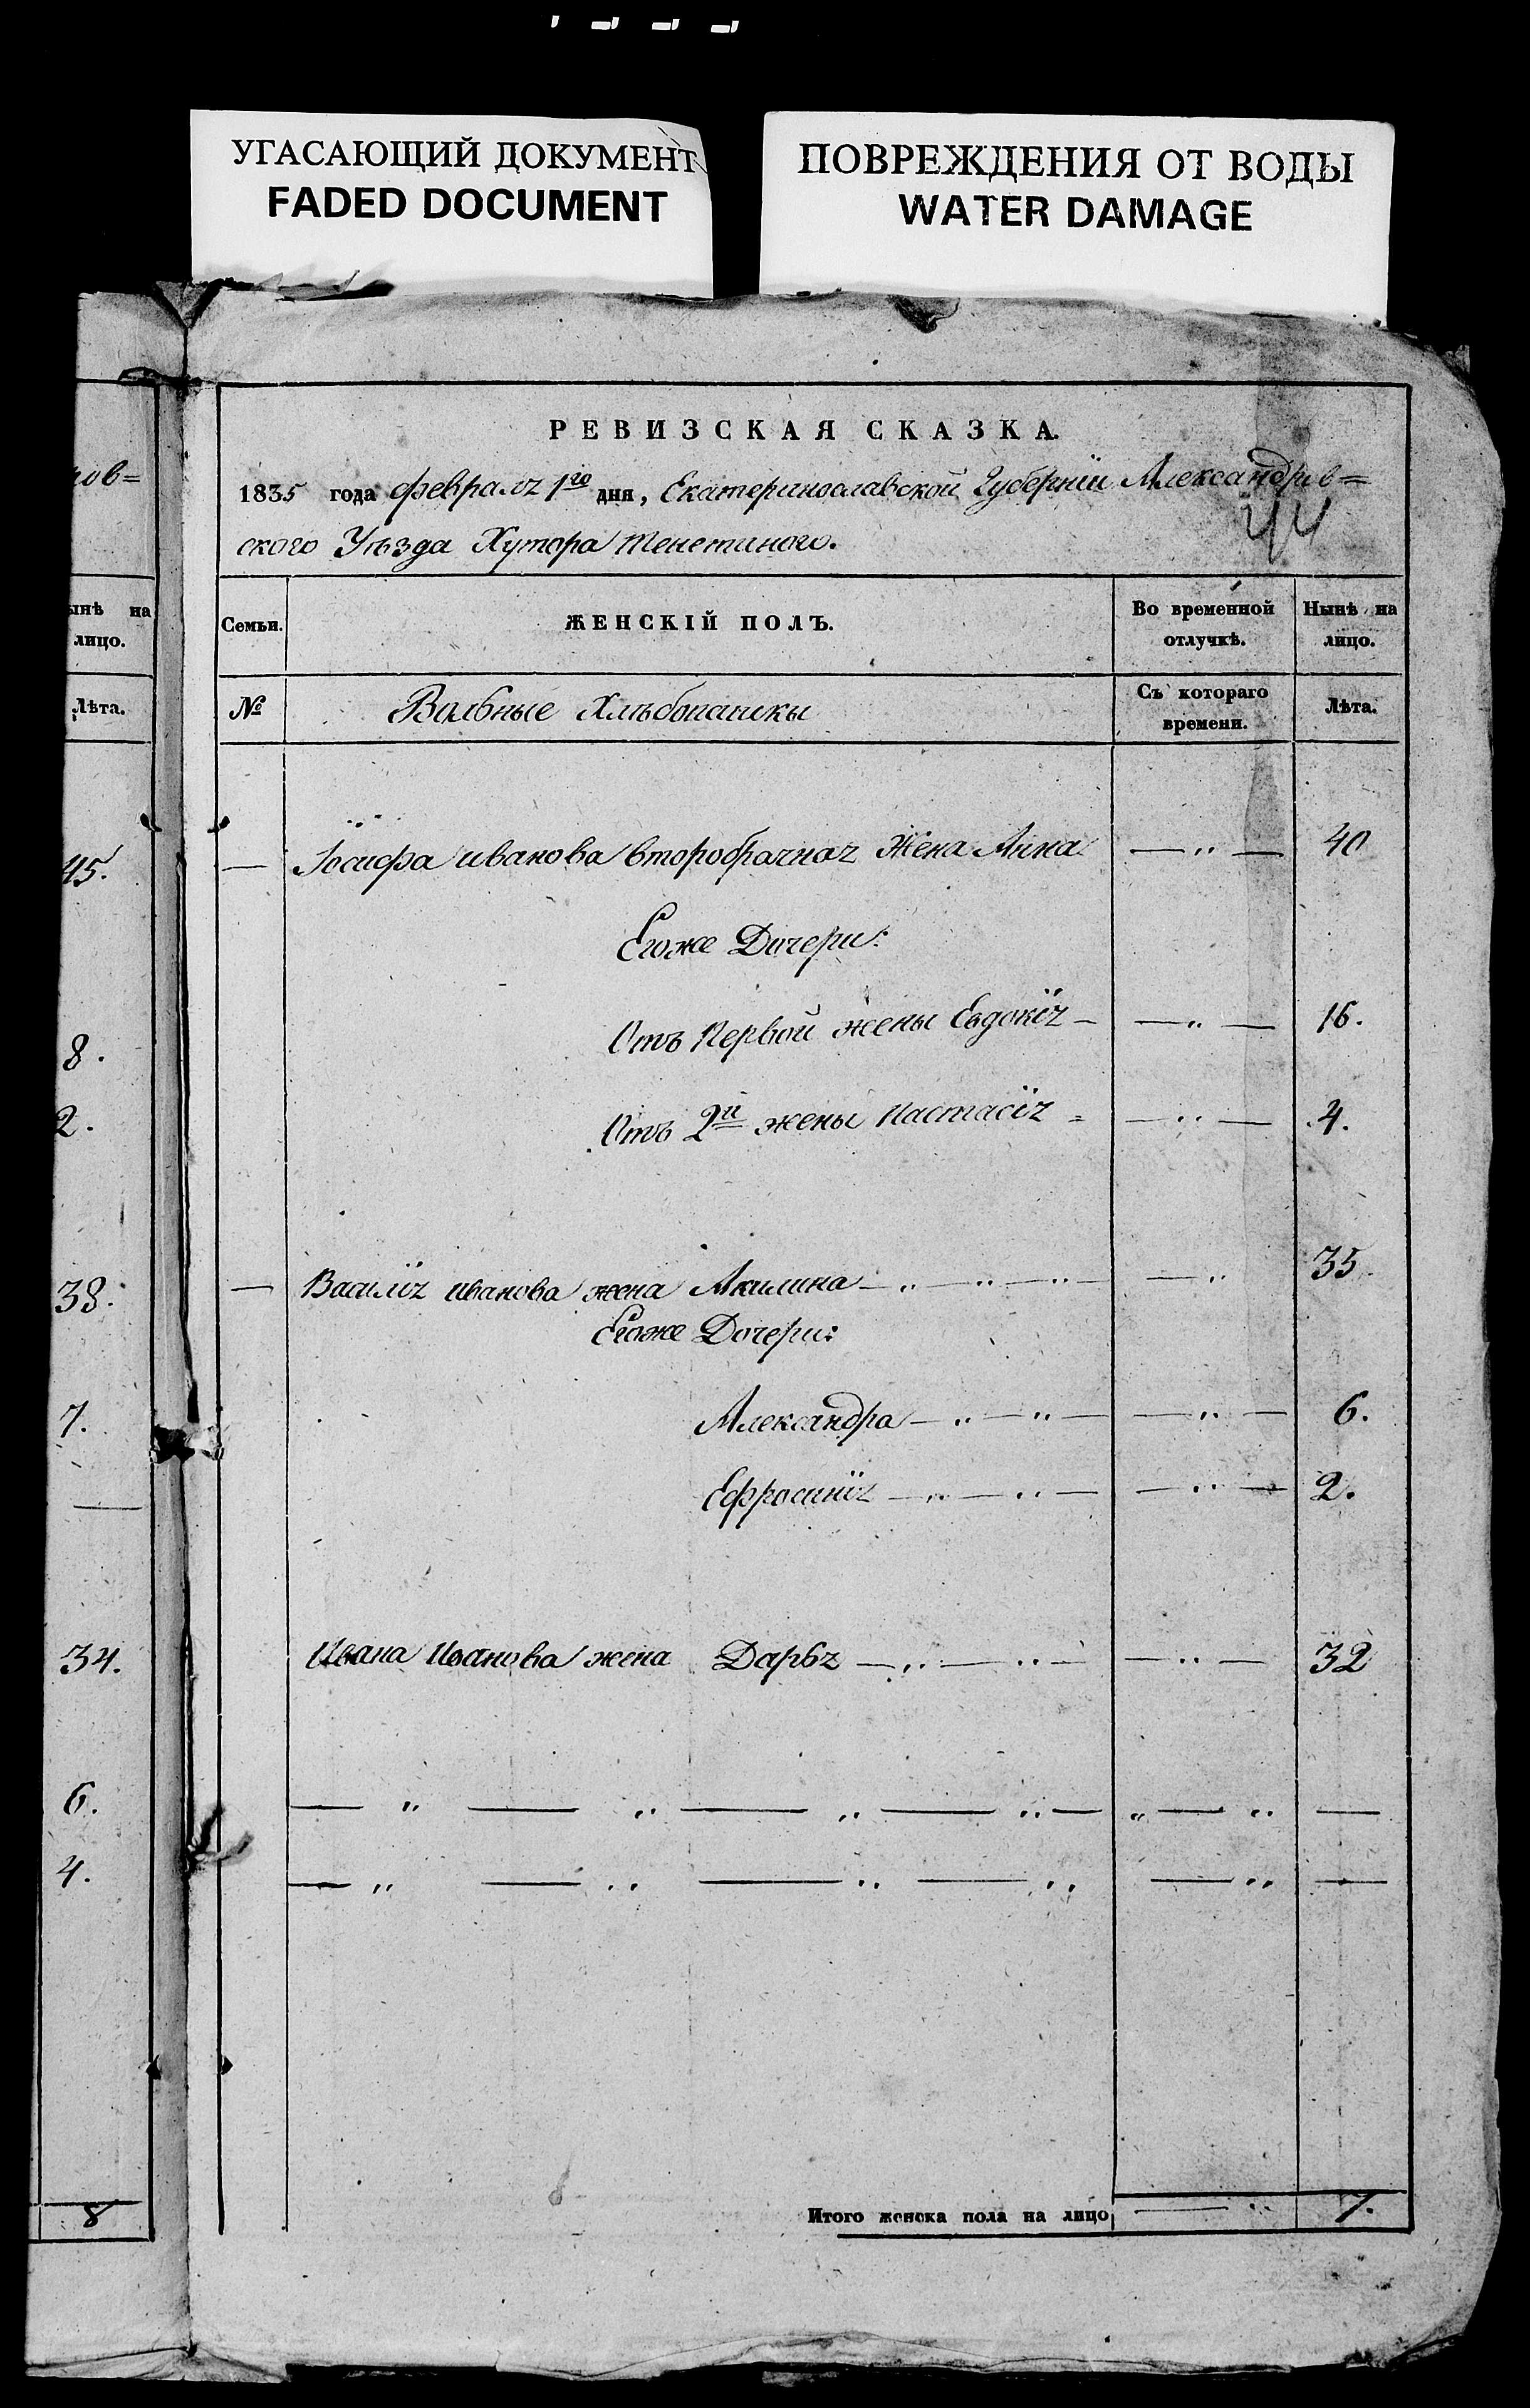 УГАСАЮЩИЙ ДОКУМЕНТ
FADED DOCUMENT
ПОВРЕЖДЕНИЯ ОТ ВОДЫ
WATER DAMAGE
ров=
ынѣ на
лицо.
Лѣта.
45.
8.
2.
38.
7.
34.
6.
4.
8
РЕВИЗСКАЯ СКАЗКА.
1835 года февраля 1го дня, Екатеринославской Губернïи Александров=
44
ского Уѣзда Хутора Тенетиного.
Семьи. ЖЕНСКІЙ ПОЛЪ. Во временной отлучкѣ. Нынѣ на лицо.
№ Вольные Хлѣбопашцы Съ котораго времени. Лѣта.
— Іосифа иванова второбрачная Жена Анна — „ — 40
Егоже Дочери:
Отъ Первой жены Евдокïя — — „ — 16.
Отъ 2й жены Настасïя = — „ — 4.
— Василïя иванова жена Акилина — „ — „ — „ — — „ 35
Егоже Дочери:
Александра — „ — „ — — „ — 6.
Ефросинïя — „ — „ — — „ — 2.
Ивана Иванова жена Дарья — „ — „ — — „ — 32
— „ — „ — „ — „ — „ — „ —
— „ — „ — „ — „ — „ —
Итого женска пола на лицо — „ 7.